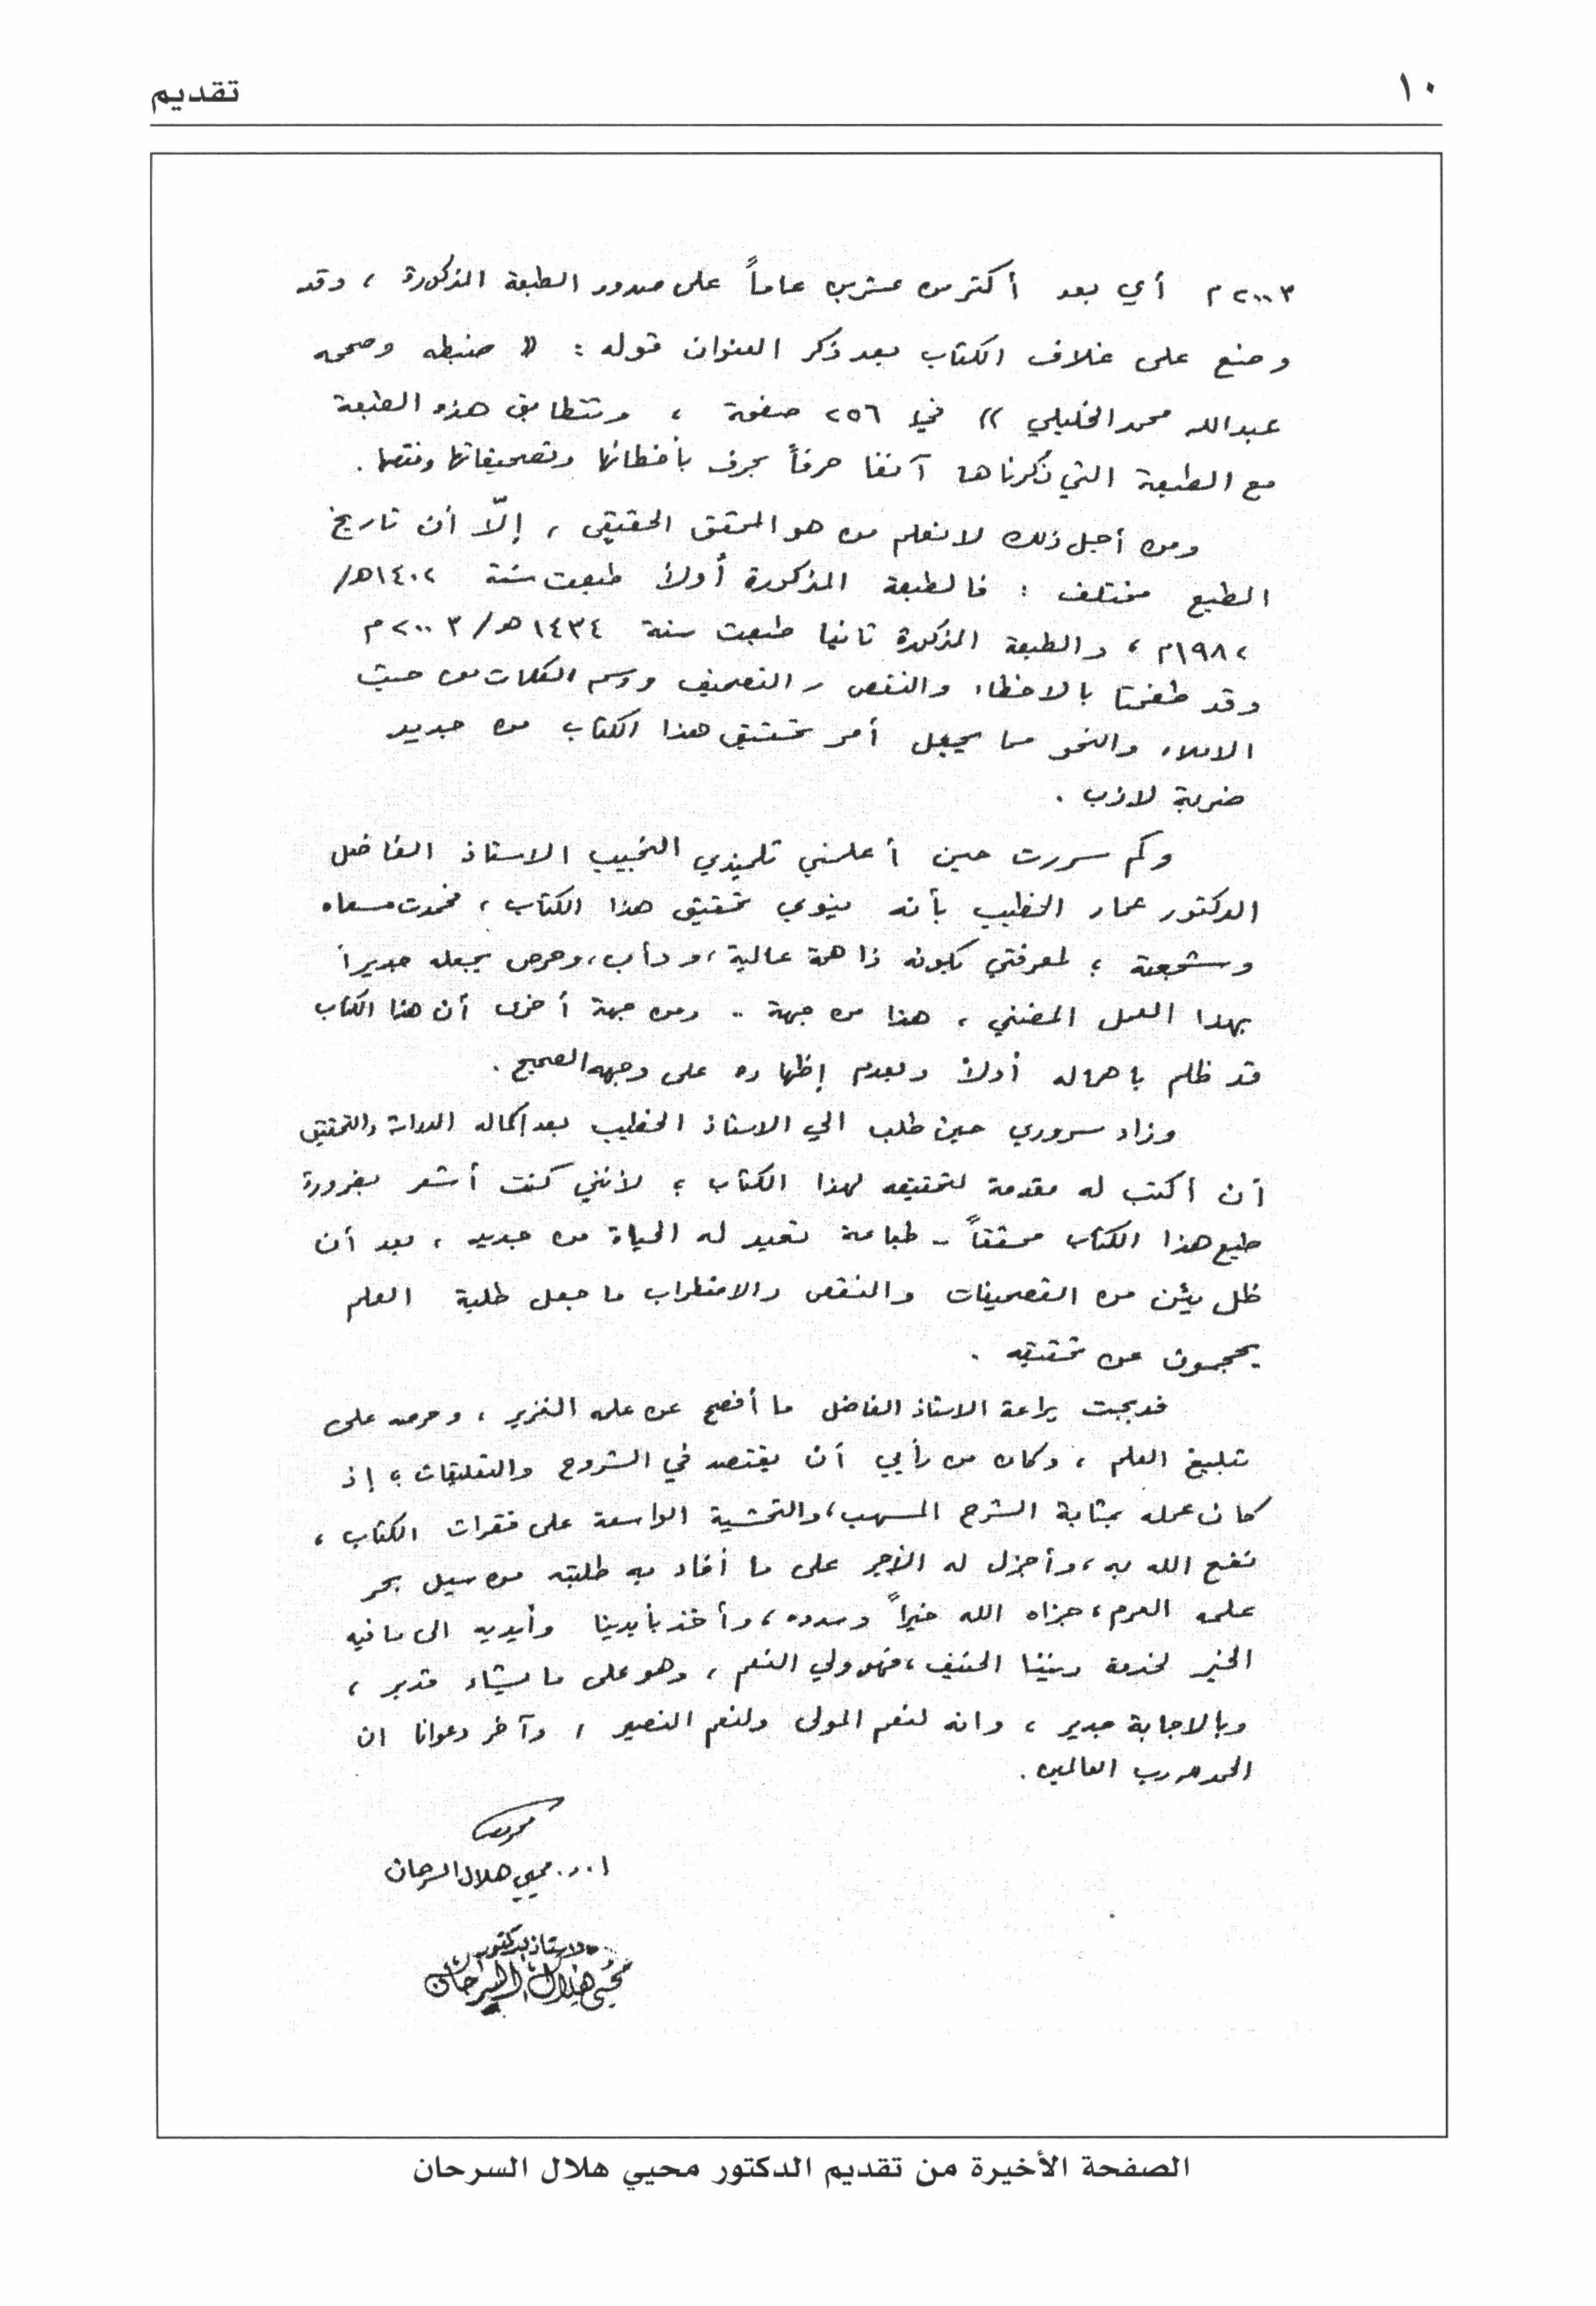 ١٠
تقديم
٢٠٠٣ م أي بعد أكثر من عشرين عاماً على صدور الطبعة المذكورة ، وقد
وضع على غلاف الكتاب بعد ذكر العنوان قوله : « ضبطه وصححه
عبدالله محمد الخليلي » في ٢٥٦ صفحة ، وتتطابق هذه الطبعة
مع الطبعة التي ذكرناها آنفا حرفاً بحرف بأخطائها وتصحيفاتها ونقصها .
ومن أجل ذلك لا نعلم من هو المحقق الحقيقي ، إلّا أن تاريخ
الطبع مختلف : فالطبعة المذكورة أولاً طبعت سنة ١٤٠٢هـ/
١٩٨٢م ، والطبعة المذكورة ثانيا طبعت سنة ١٤٣٤هـ/ ٢٠٠٣ م
وقد طفحتا بالاخطاء والنقص والتصحيف ورسم الكلمات من حيث
الاملاء والنحو مما يجعل أمر تحقيق هذا الكتاب من جديد
ضربة لازب .
وكم سررت حين أعلمني تلميذي النجيب الاستاذ الفاضل
الدكتور عمار الخطيب بأنه ينوي تحقيق هذا الكتاب ، فحمدت مسعاه
وشجعته ؛ لمعرفتي بكونه ذا همة عالية ، ودأب ، وحرص يجعله جديراً
بهذا العمل المضني ، هذا من جهة .. ومن جهة أخرى أن هذا الكتاب
قد ظلم باهماله أولاً وبعدم إظهاره على وجهه الصحيح .
وزاد سروري حين طلب الي الاستاذ الخطيب بعد إكماله الدراسة والتحقيق
أن أكتب له مقدمة لتحقيقه لهذا الكتاب ؛ لأنني كنت أشعر بضرورة
طبع هذا الكتاب محققاً - طباعة تعيد له الحياة من جديد ، بعد أن
ظل يئن من التصحيفات والنقص والاضطراب ما جعل طلبة العلم
يحجمون عن تحقيقه .
فدبجت يراعة الاستاذ الفاضل ما أفصح عن علمه الغزير ، وحرصه على
تبليغ العلم ، وكان من رأيي أن يقتصد في الشروح والتعليقات ؛ إذ
كان عمله بمثابة الشرح المسهب ، والتحشية الواسعة على فقرات الكتاب ،
نفع الله به ، وأجزل له الأجر على ما أفاد به طلبته من سيل بحر
علمه العرم ، جزاه الله خيراً وسدده ، وأخذ بأيدينا وأيديه الى ما فيه
الخير لخدمة ديننا الحنيف ، فهو ولي النعم ، وهو على ما يشاء قدير ،
وبالاجابة جدير ، وانه لنعم المولى ولنعم النصير ، وآخر دعوانا ان
الحمد لله رب العالمين .
ا.د. محيي هلال السرحان
الاستاذ الدكتور
محيي هلال السرحان
الصفحة الأخيرة من تقديم الدكتور محيي هلال السرحان